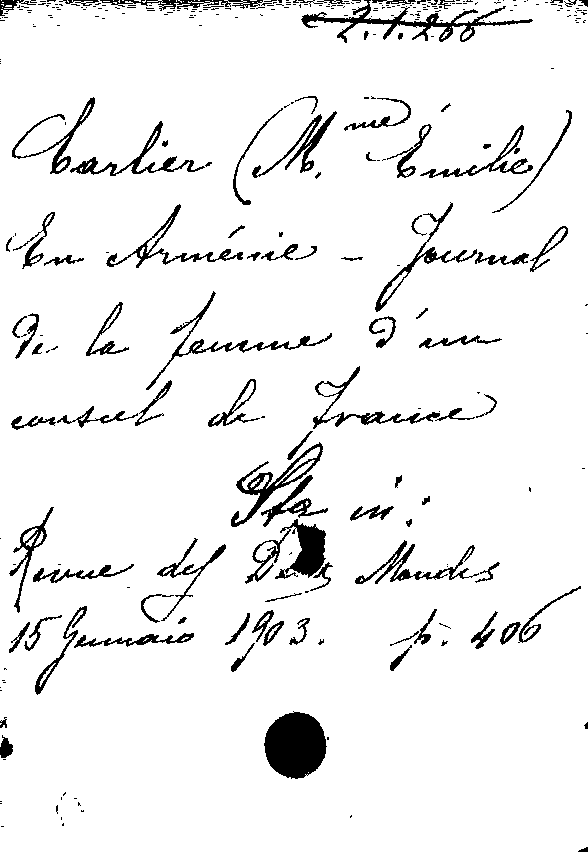 2.1.266
Carlier (M.me Émilie)
En Arménie - Journal
de la femme d'un
consul de France
Sta in:
Revue des Deux Mondes
15 Gennaio 1903. p. 406